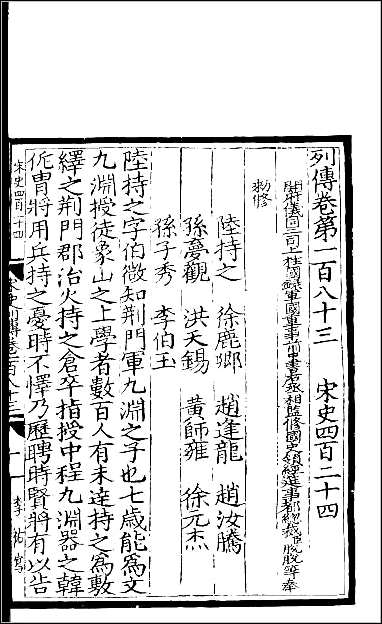 列傳卷第一百八十三　宋史四百二十四
開府儀同三司上柱國錄軍國重事前中書右丞相監修國史領經筵事都總裁臣脫脫等奉
勑修
陸持之　徐鹿卿　趙逢龍　趙汝騰
孫夢觀　洪天錫　黃師雍　徐元杰
孫子秀　李伯玉
陸持之字伯微知荆門軍九淵之子也七歲能為文
九淵授徒象山之上學者數百人有未達持之為敷
繹之荆門郡治火持之倉卒指授中程九淵器之韓
侂胄將用兵持之憂時不懌乃歷聘時賢將有以告
宋史四百二十四
宋史列傳卷一百八十三
一